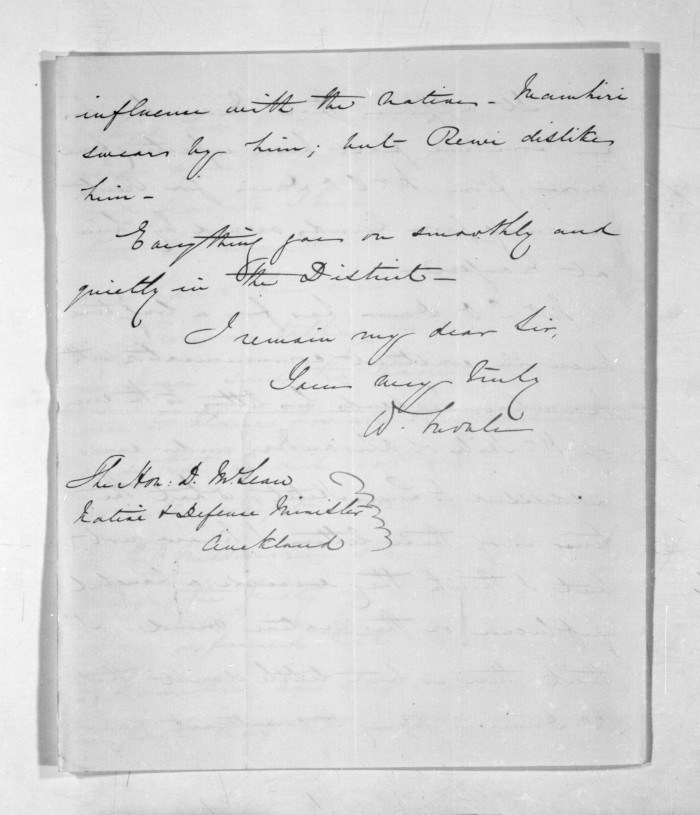 influence with the natives - Mawhiri
swears by him; but Rewi dislikes
him -
Everything goes on smoothly and
quietly in the District -
I remain my dear Sir,
Yours very truly
W.
The Hon: D. McLean
Native & Defense Minister
Auckland